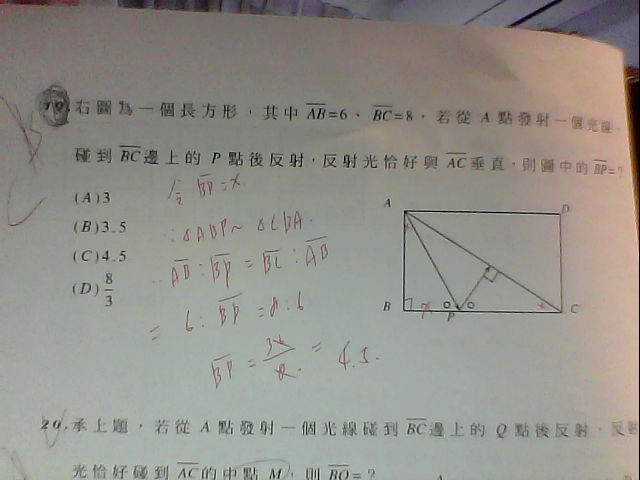 19.右圖為一個長方形，其中AB=6、BC=8，若從A點發射一個光線
碰到BC邊上的P點後反射，反射光恰好與AC垂直，則圖中的BP=?
(A)3
(B)3.5
(C)4.5
(D)8/3
令 BP=x
∵△ABP~△CBA.
AB:BP=BC:AB
= 6:BP=8:6
BP=36/8=4.5.
A
D
B
x
P
C
20.承上題，若從A點發射一個光線碰到BC邊上的Q點後反射，反射
光恰好碰到AC的中點M，則BQ=?